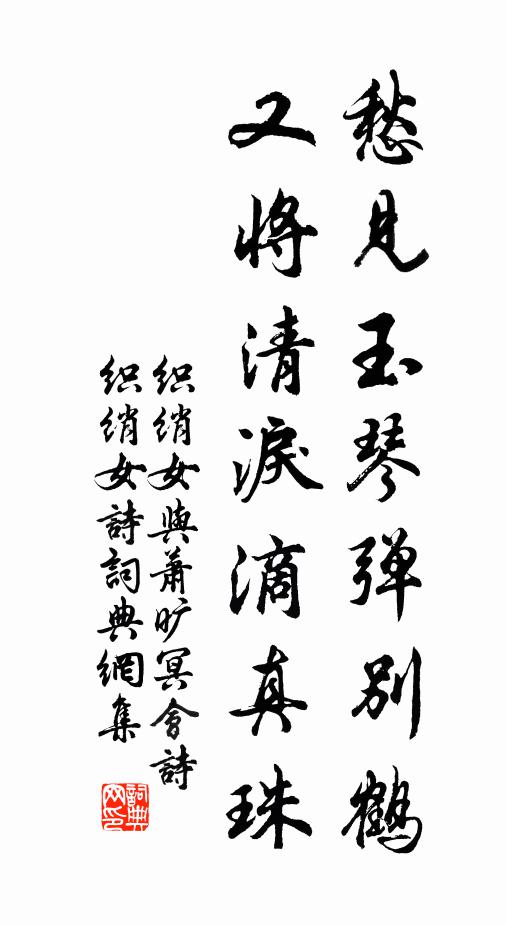 愁見玉琴弹别鹤
又將清淚滴真珠
织绡女與蕭旷冥會詩
织绡女詩詞典網集
詞典网印